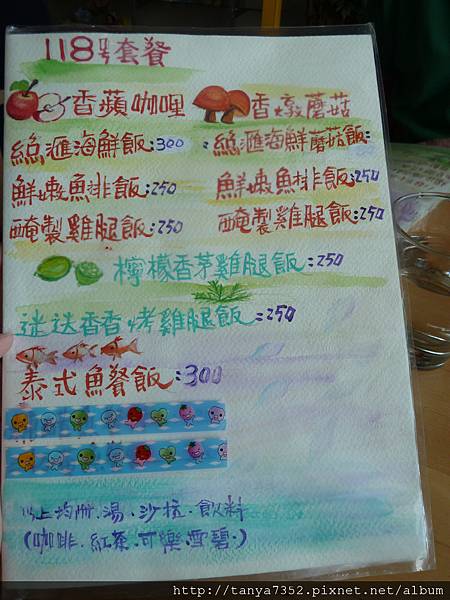 118號套餐
香蘋咖哩
香燉蘑菇
總滙海鮮飯:300
總滙海鮮蘑菇飯:
鮮嫩魚排飯:250
鮮嫩魚排飯:250
醃製雞腿飯:250
醃製雞腿飯:250
檸檬香茅雞腿飯:250
迷迭香香烤雞腿飯:250
泰式魚餐飯:300
以上均附.湯.沙拉.飲料
(咖啡.紅茶.可樂.雪碧.)
http://tanya7352.pixnet.net/album